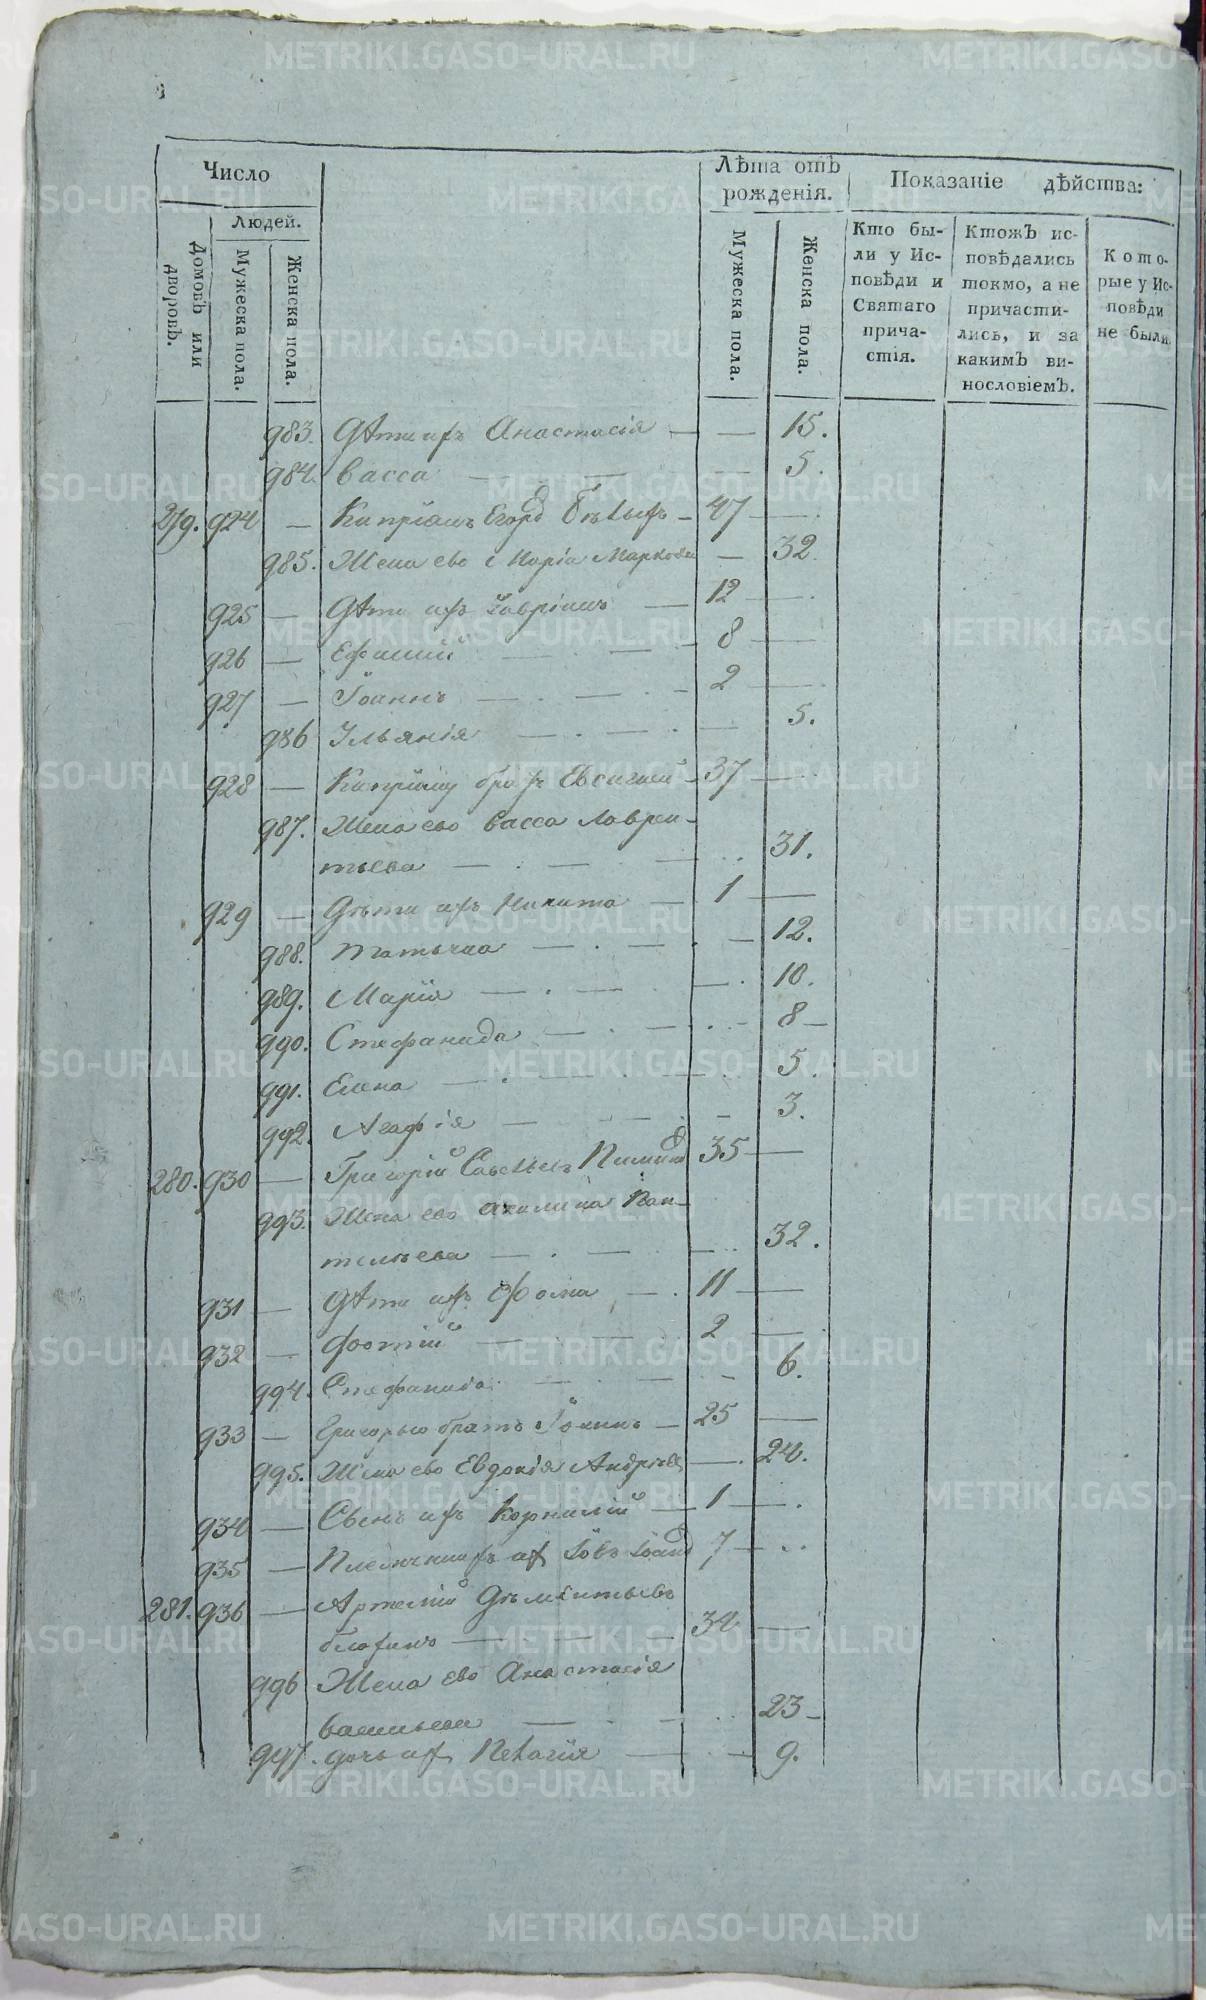 Число
Людей.
Домовъ или дворовъ.
Мужеска пола.
Женска пола.
Лѣта отъ рожденія.
Мужеска пола.
Женска пола.
Показаніе дѣйства:
Кто бы-
ли у Ис-
повѣди и
Святаго
прича-
стія.
Ктожъ ис-
повѣдались
токмо, а не
причасти-
лись, и за
какимъ ви-
нословіемъ.
Кото-
рые у Ис-
повѣди
не были.
983. Дѣти ихъ Анастасія — — 15.
984. Васса — — 5.
279. 924 — Кипріанъ Егоръ — 47 —
985. Жена ево Марія Маркова — 32.
925 — Дѣти ихъ — 12 —
926 — Ефимій — 8 —
927 — Іоаннъ — 2 —
986 Ульянія — 5.
928 — Кипріяну братъ Евсигней — 37 —
987. Жена ево Васса Лаврен-
тьева — 31.
929 — Дѣти ихъ Никита — 1 —
988. Татьяна — 12.
989. Марія — 10.
990. Стефанида — 8 —
991. Елена — 5.
992. Агафія — 3.
280. 930 — Григорій Савельевъ 35 —
993. Жена ево Акилина Пан-
телѣева — 32.
931 — Дѣти ихъ Фома — 11 —
932 — Фотій — 2 —
994. Стефанида — 6.
933 — Григорью братъ Іоаннъ — 25 —
995. Жена ево Евдокія Андрѣева — 24.
934 — Сынъ ихъ Корнилій — 1 —
935 — Племянникъ их Іовъ 7 —
281. 936 — Артемій Дѣментьевъ
34 —
996 Жена ево Анастасія
Васильева — 23 —
997. дочь их Пелагія — 9.
METRIKI.GASO-URAL.RU